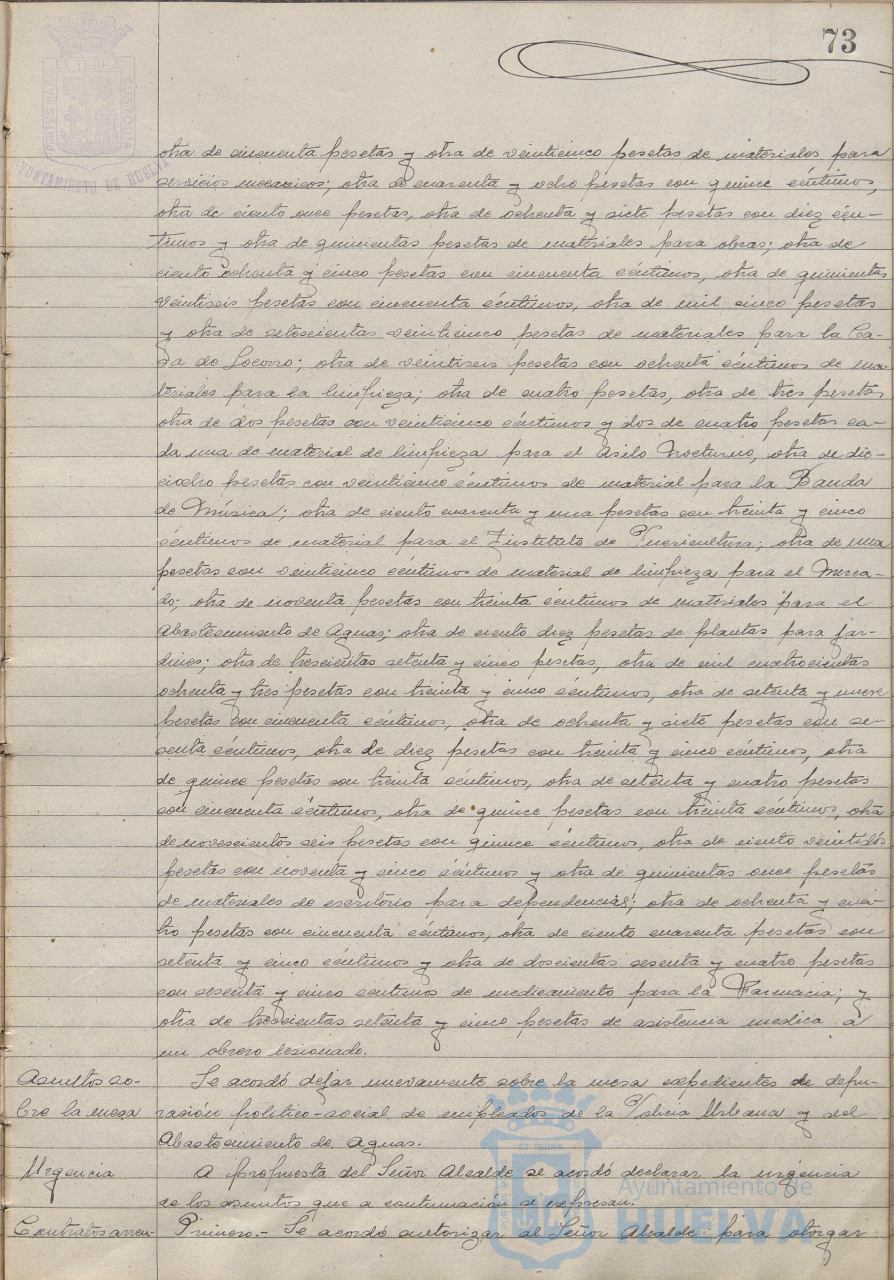 73
PORTUS MARIS ET TERRÆ CUSTODIA
AYUNTAMIENTO DE HUELVA
otra de cincuenta pesetas y otra de veinticinco pesetas de materiales para
servicios mecanicos; otra de cuarenta y ocho pesetas con quince céntimos,
otra de ciento once pesetas, otra de ochenta y siete pesetas con diez cén-
timos y otra de quinientas pesetas de materiales para obras; otra de
ciento ochenta y cinco pesetas con cincuenta céntimos, otra de quinientas
veintiseis pesetas con cincuenta céntimos, otra de mil cinco pesetas
y otra de setescientas veinticinco pesetas de materiales para la Ca-
sa de Socorro; otra de veintiseis pesetas con ochenta céntimos de ma-
teriales para la limpieza; otra de cuatro pesetas, otra de tres pesetas
otra de dos pesetas con veinticinco céntimos y dos de cuatro pesetas ca-
da una de material de limpieza para el Asilo Nocturno, otra de die-
ciocho pesetas con veinticinco céntimos de material para la Banda
de Música; otra de ciento cuarenta y una pesetas con treinta y cinco
céntimos de material para el Instituto de Puericultura; otra de una
pesetas con veinticinco céntimos de material de limpieza para el Merca-
do; otra de noventa pesetas con treinta céntimos de materiales para el
Abastecimiento de Aguas; otra de ciento diez pesetas de plantas para jar-
dines; otra de trescientas setenta y cinco pesetas, otra de mil cuatrocientas
ochenta y tres pesetas con treinta y cinco céntimos, otra de setenta y nueve
pesetas con cincuenta céntimos, otra de ochenta y siete pesetas con se-
senta céntimos, otra de diez pesetas con treinta y cinco céntimos, otra
de quince pesetas con treinta céntimos, otra de setenta y cuatro pesetas
con cincuenta céntimos, otra de quince pesetas con treinta céntimos, otra
de novescientos seis pesetas con quince céntimos, otra de ciento veintidós
pesetas con noventa y cinco céntimos y otra de quinientas once pesetas
de materiales de escritorio para dependencias; otra de ochenta y cua-
tro pesetas con cincuenta céntimos, otra de ciento cuarenta pesetas con
setenta y cinco céntimos y otra de doscientas sesenta y cuatro pesetas
con sesenta y cinco céntimos de medicamento para la Farmacia; y
otra de trescientas setenta y cinco pesetas de asistencia medica a
un obrero lesionado.
Asuntos so- Se acordó dejar nuevamente sobre la mesa expedientes de depu-
bre la mesa ración político-social de empleados de la Policía Urbana y del
Abastecimiento de Aguas.
Urgencia A propuesta del Señor Alcalde se acordó declarar la urgencia
de los asuntos que a continuación se expresan.
Contratos arren- Primero.- Se acordó autorizar al Señor Alcalde para otorgar
Ayuntamiento de
HUELVA